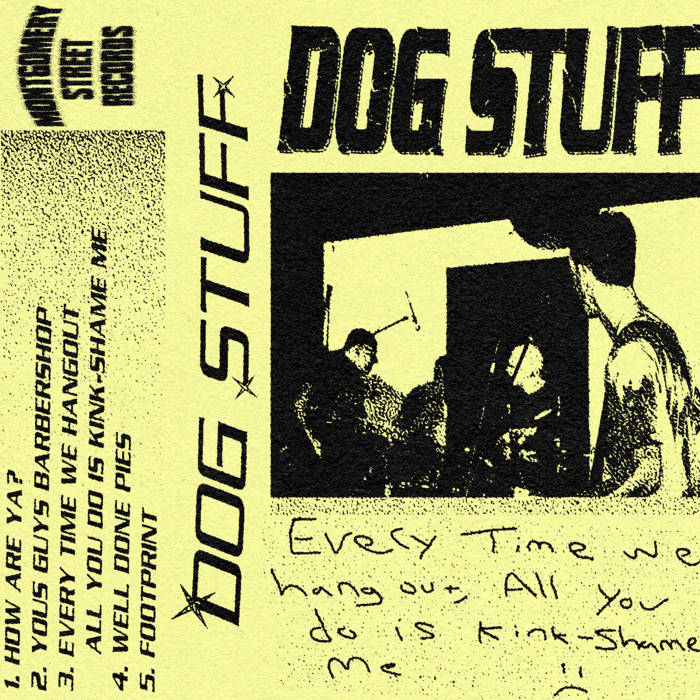 MONTGOMERY
STREET
RECORDS
1. HOW ARE YA?
2. YOUS GUYS BARBERSHOP
3. EVERY TIME WE HANGOUT
ALL YOU DO IS KINK-SHAME ME
4. WELL DONE PIES
5. FOOTPRINT
DOG STUFF
DOG STUFF
Every Time we
hang out, All you
do is Kink-Shame
Me :(